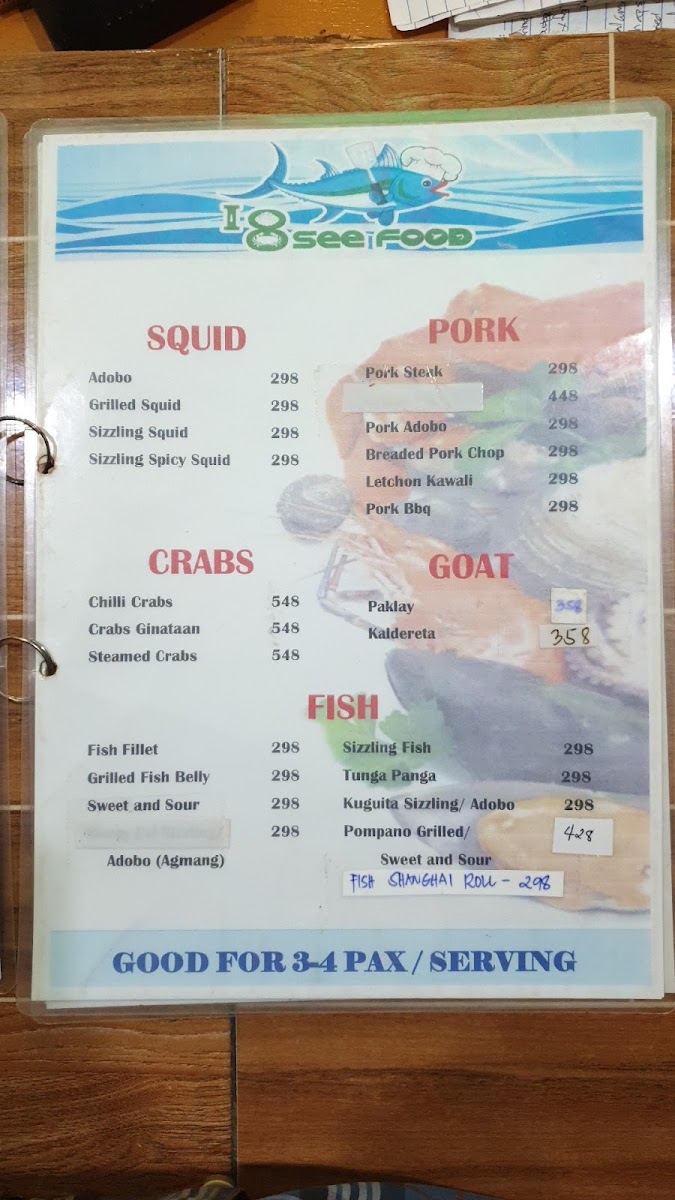 I 8 SEE FOOD
SQUID
Adobo 298
Grilled Squid 298
Sizzling Squid 298
Sizzling Spicy Squid 298
PORK
Pork Steak 298
448
Pork Adobo 298
Breaded Pork Chop 298
Letchon Kawali 298
Pork Bbq 298
CRABS
Chilli Crabs 548
Crabs Ginataan 548
Steamed Crabs 548
GOAT
Paklay 358
Kaldereta 358
FISH
Fish Fillet 298
Grilled Fish Belly 298
Sweet and Sour 298
298
Adobo (Agmang)
Sizzling Fish 298
Tunga Panga 298
Kuguita Sizzling/ Adobo 298
Pompano Grilled/ 428
Sweet and Sour
FISH SHANGHAI ROLL - 298
GOOD FOR 3-4 PAX / SERVING